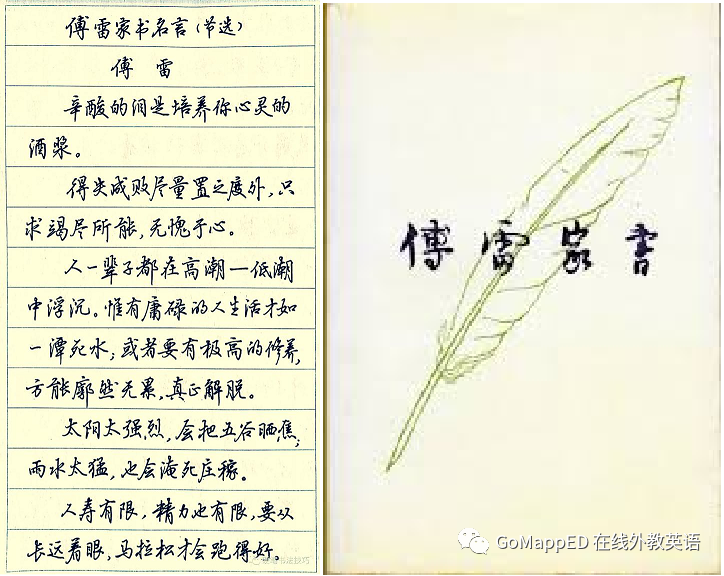 傅雷家书名言(节选)
傅 雷
辛酸的泪是培养你心灵的
酒浆。
得失成败尽量置之度外,只
求竭尽所能,无愧于心。
人一辈子都在高潮—低潮
中浮沉。惟有庸碌的人生活才如
一潭死水;或者要有极高的修养,
方能廓然无累,真正解脱。
太阳太强烈,会把五谷晒焦;
雨水太猛,也会淹死庄稼。
人寿有限,精力也有限,要从
长远着眼,马拉松才会跑得好。
傅雷家書
GoMappED 在线外教英语